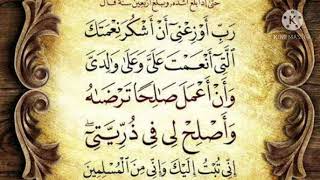 حتى إذا بلغ أشده وبلغ أربعين سنة قال
رَبِّ أَوْزِعْنِىٓ أَنْ أَشْكُرَ نِعْمَتَكَ
ٱلَّتِىٓ أَنْعَمْتَ عَلَىَّ وَعَلَىٰ وَٰلِدَىَّ
وَأَنْ أَعْمَلَ صَٰلِحًا تَرْضَىٰهُ
وَأَصْلِحْ لِى فِى ذُرِّيَّتِىٓ ۖ
إِنِّى تُبْتُ إِلَيْكَ وَإِنِّى مِنَ ٱلْمُسْلِمِينَ
KINEMASTER